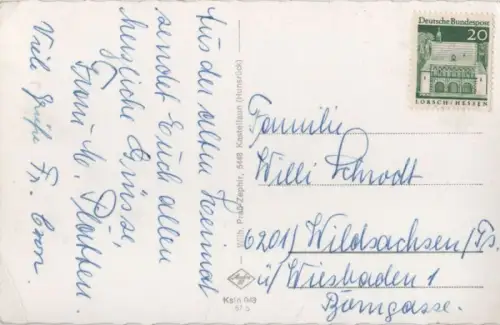 Aus der alten Heimat
sendet Euch allen
herzliche Grüsse,
Frau M.
Viele Grüße Fr.
Wilh. Praß/Zephir, 5448 Kastellaun (Hunsrück)
Agfa
Deutsche Bundespost
20
LORSCH/HESSEN
Familie
Willi Schrodt
6201/Wildsachsen/Ts.
ü/Wiesbaden 1
Borngasse.